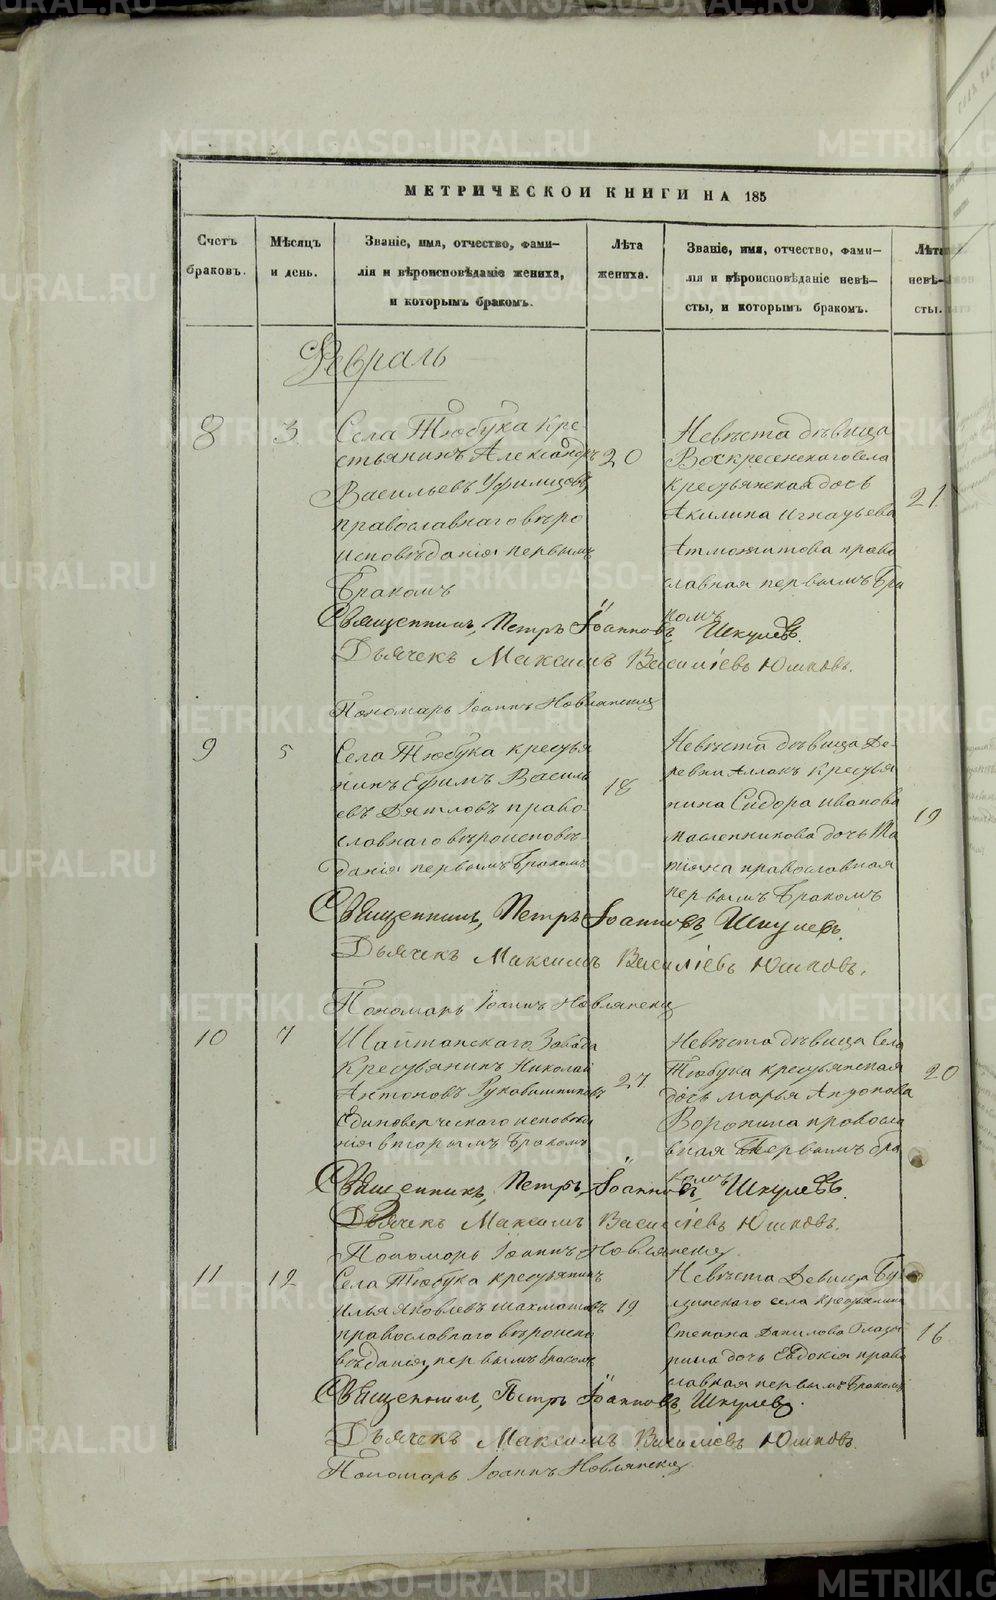 МЕТРИЧЕСКОЙ КНИГИ НА 185
Счетъ
браковъ.
Мѣсяцъ
и день.
Званіе, имя, отчество, фами-
лія и вѣроисповѣданіе жениха,
и которымъ бракомъ.
Лѣта
жениха.
Званіе, имя, отчество, фами-
лія и вѣроисповѣданіе невѣ-
сты, и которымъ бракомъ.
Лѣта
невѣ-
сты.
Февраль
8
3
Села Тюбука Кре
стьянинъ Александръ
Васильевъ
православнаго вѣро
исповѣданія первымъ
бракомъ
20
Невѣста дѣвица
Воскресенскаго села
крестьянская дочь
Акилина Игнатьева
право
славная первымъ бра
комъ
21
Священникъ, Петръ Іоанновъ, Шкулевъ.
Дьячекъ Максимъ Васильевъ Юшковъ.
Пономарь Іоаннъ Новлянскій
9
5
Села Тюбука крестья
нинъ Ефимъ Василь
евъ Дятловъ право
славнаго вѣроисповѣ-
данія первымъ бракомъ
18
Невѣста дѣвица де-
ревни Аллакъ крестья
нина Сидора Иванова
Масленникова дочь Та
тіяна православная
первымъ бракомъ
19
Священникъ, Петръ Іоанновъ, Шкулевъ.
Дьячекъ Максимъ Василіевъ Юшковъ.
Пономарь Іоаннъ Новлянскій
10
7
Шайтанскаго Завода
Крестьянинъ Николай
Антоновъ Рукавишниковъ
Единоверческаго исповѣда
нія вторымъ бракомъ
27
Невѣста дѣвица села
Тюбука крестьянская
дочь Марья Антонова
Воронина правосла
вная первымъ бра
комъ
20
Священникъ, Петръ, Іоанновъ, Шкулевъ.
Дьячекъ Максимъ Василіевъ Юшковъ.
Пономарь Іоаннъ Новлянскій.
11
12
Села Тюбука крестьянинъ
Илья Яковлевъ Шахматовъ
православнаго вѣроиспо
вѣданія, первымъ бракомъ
19
Невѣста Девица
села крестьянина
Степана Данилова Глазы
рина дочь Евдокія право
славная первымъ бракомъ
16
Священникъ, Петръ Іоанновъ, Шкулевъ.
Дьячекъ Максимъ Василіевъ Юшковъ.
Пономарь Іоаннъ Новлянскій.
METRIKI.GASO-URAL.RU